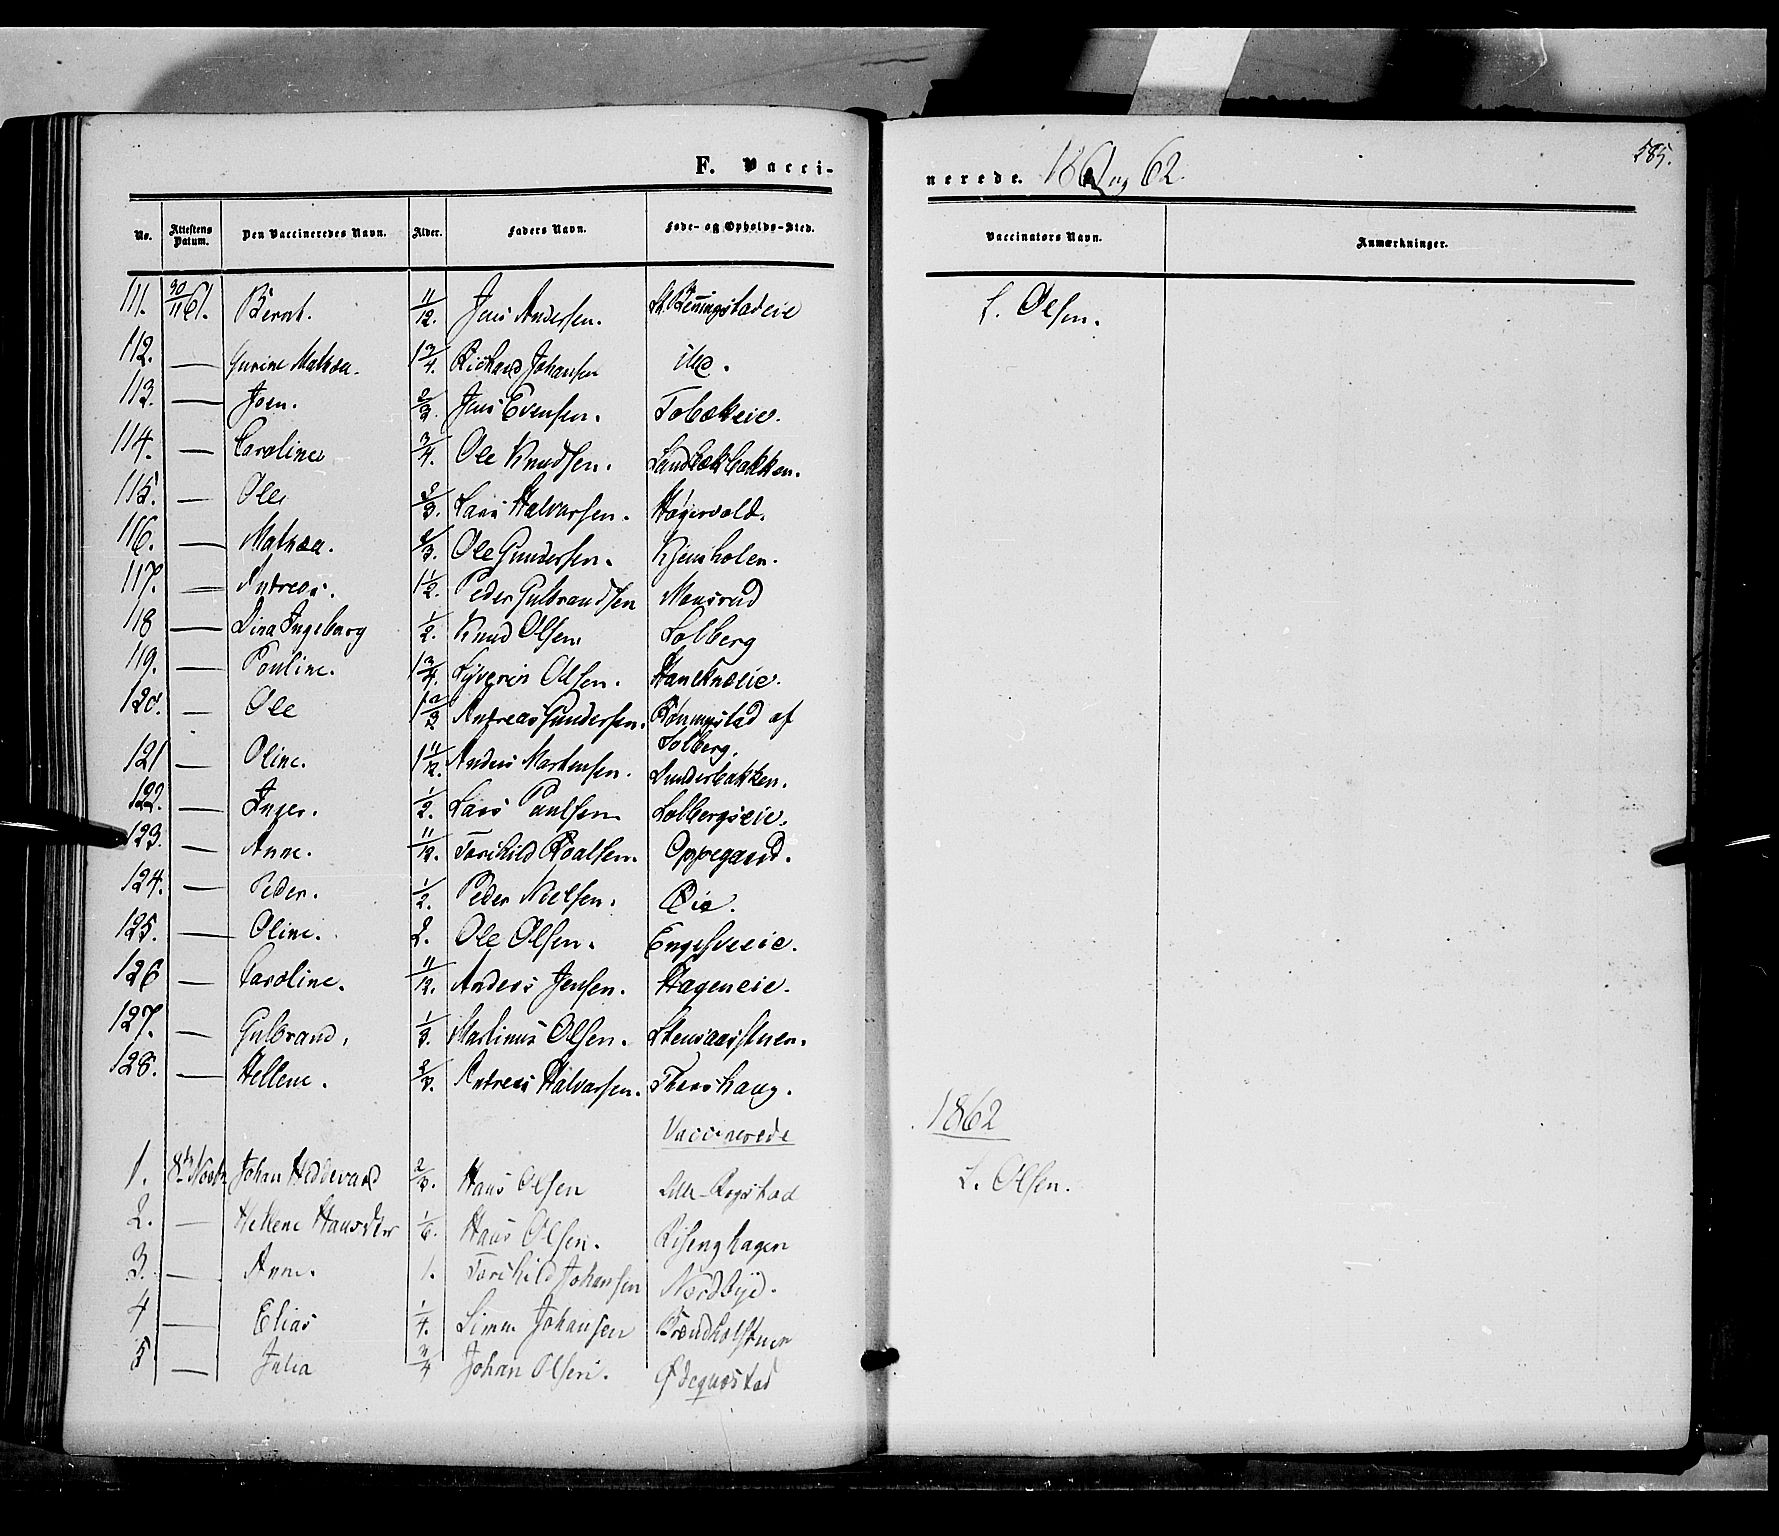 585.
F. Vacci-nerede. 1861 og 62.
No. Attestens Datum. Den Vaccineredes Navn. Alder. Faders Navn. Føde- og Opholds-Sted. Vaccinators Navn. Anmærkninger.
111. 30/11 61. Bernt. 11/12. Jens Andersen. St. Benningstadeie L. Olsen.
112. — Gurine Mathea. 1 3/4. Richard Johansen ibid.
113. — Joen. 2/3. Jens Evensen. Tobækeie.
114. — Caroline 3/4. Ole Knudsen. Sandbækbakken.
115. — Ole 2/3. Lars Halvorsen. Hagervold.
116. — Mathea. 2/3. Ole Gundersen. Kjensholen.
117. — Andreas. 1 1/2. Peder Gulbrandsen Monsrud
118 — Dina Ingeborg 1/2. Knud Olsen Solberg
119. — Pouline. 1 3/4. Syverin Olsen.
120. — Ole 1 2/3 Andreas Gundersen. Rønningstad af Solberg.
121 — Oline. 1 11/12. Anders Mortensen.
122. — Inger. 1/2. Lars Paulsen Solbergseie.
123. — Anne. 11/12. Torchild Roalsen. Oppegaard.
124. — Peder. 1/2. Peder Nielsen. Øie.
125. — Oline. 2. Ole Olsen.
126 — Caroline. 11/12. Anders Jensen. Hageneie.
127. — Gulbrand. 1/3. Martinus Olsen. Stensaasstuen.
128. — Hellene. 2/3. Andreas Halvorsen. Thoeshaug.
Vaccinerede 1862
1. 8de Novbr Johan Hedevard 2/3. Hans Olsen Lille-Rogstad L. Olsen.
2. — Hellene Hansdtr 1/6. Hans Olsen. Risenghagen
3. — Anne. 1. Torchild Johansen Nordbye.
4 — Elias 1/4. Simen Johansen Brendholstuen
5 — Julia 3/4 Johan Olsen. Ødegaastad